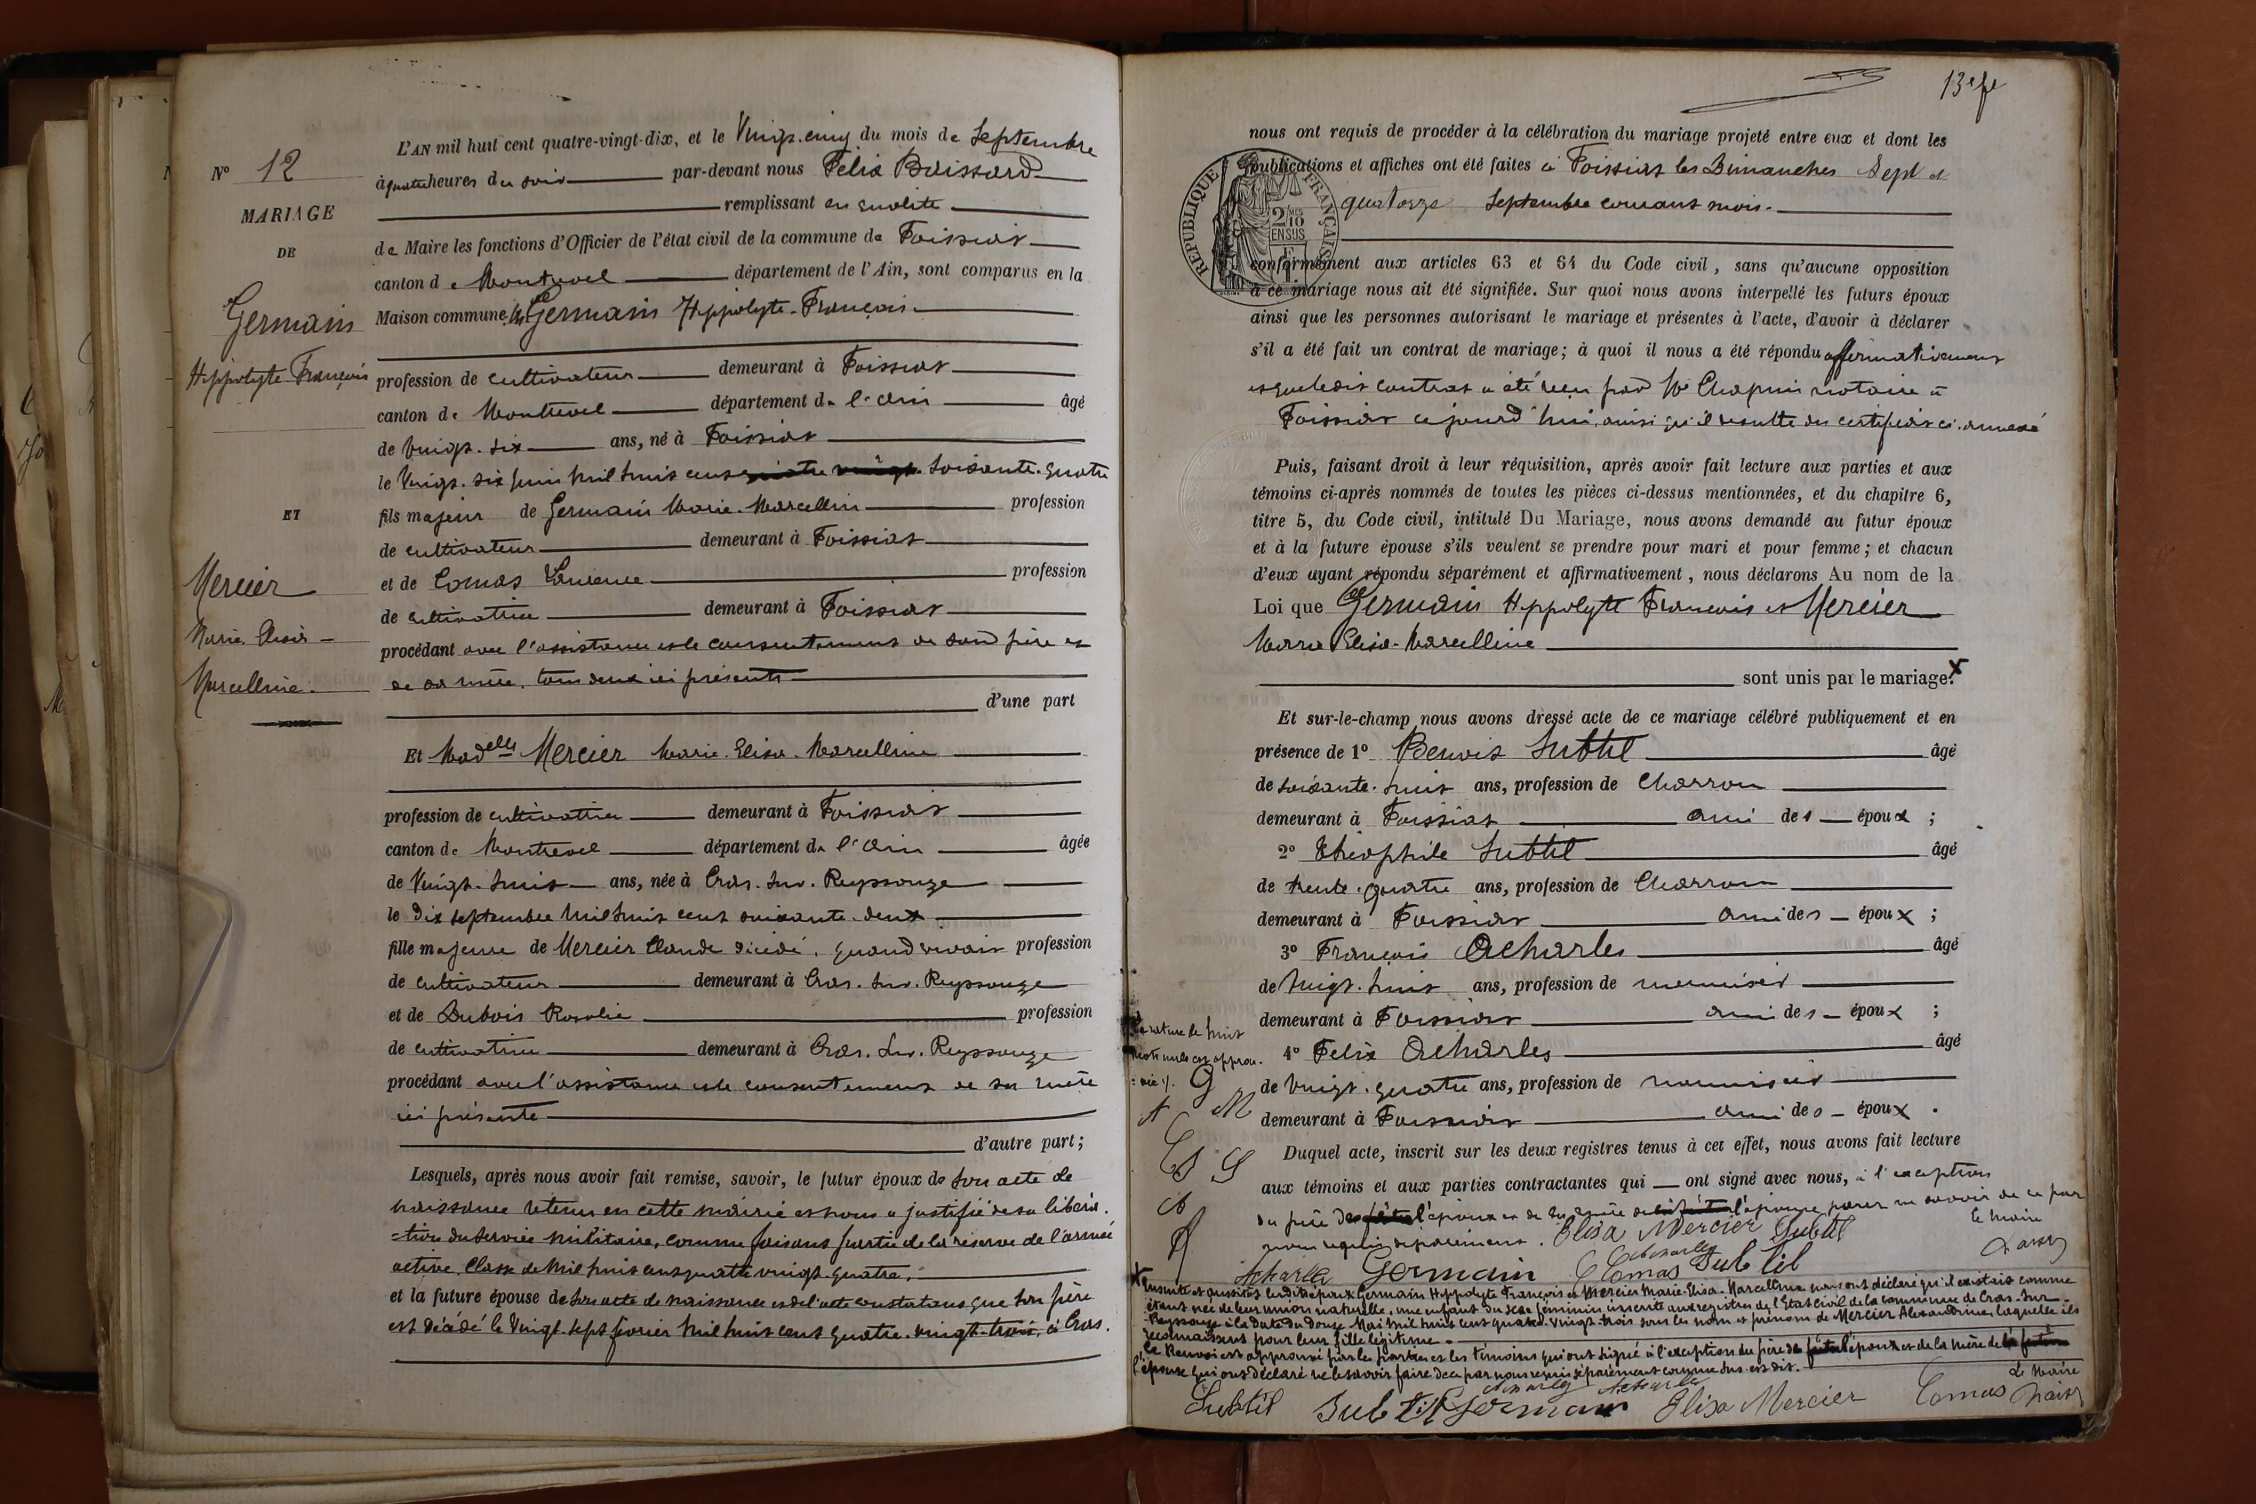 N° 12
MARIAGE
DE
Germain
Hippolyte François
ET
Mercier
Marie Elisa
Marcelline
L'AN mil huit cent quatre-vingt-dix, et le Vingt cinq du mois de Septembre
à quatre heures du soir par-devant nous Felix Boissard
remplissant en qualité
de Maire les fonctions d'Officier de l'état civil de la commune de Foissiat
canton de Montrevel département de l'Ain, sont comparus en la
Maison commune Germain Hippolyte François
profession de cultivateur demeurant à Foissiat
canton de Montrevel département de l'Ain âgé
de Vingt six ans, né à Foissiat
le Vingt six juin mil huit cent quatre vingt soixante quatre
fils majeur de Germain Marie Marcellin profession
de cultivateur demeurant à Foissiat
et de Comas Laurence profession
de cultivatrice demeurant à Foissiat
procédant avec l'assistance et le consentement de son père et
de sa mère, tous deux ici présents
d'une part
Et Madelle Mercier Marie Elisa Marcelline
profession de cultivatrice demeurant à Foissiat
canton de Montrevel département de l'Ain âgée
de Vingt huit ans, née à Cras sur Reyssouze
le Dix septembre mil huit cent soixante deux
fille majeure de Mercier Claude décédé, quand vivait profession
de cultivateur demeurant à Cras sur Reyssouze
et de Dubois Rosalie profession
de cultivatrice demeurant à Cras sur Reyssouze
procédant avec l'assistance et le consentement de sa mère
ici présente
d'autre part;
Lesquels, après nous avoir fait remise, savoir, le futur époux de son acte de
naissance retenu en cette mairie et nous a justifié de sa libéra-
=tion du service militaire, comme faisant partie de la réserve de l'armée
active, Classe de mil huit cent quatre vingt quatre,
et la future épouse de son acte de naissance et de l'acte constatant que son père
est décédé le Vingt sept fevrier mil huit cent quatre vingt trois, à Cras.
13e
nous ont requis de procéder à la célébration du mariage projeté entre eux et dont les
publications et affiches ont été faites à Foissiat les Dimanches Sept et
quatorze Septembre courant mois.
REPUBLIQUE FRANÇAISE
2/10 EN SUS
conformément aux articles 63 et 64 du Code civil, sans qu'aucune opposition
à ce mariage nous ait été signifiée. Sur quoi nous avons interpellé les futurs époux
ainsi que les personnes autorisant le mariage et présentes à l'acte, d'avoir à déclarer
s'il a été fait un contrat de mariage; à quoi il nous a été répondu affirmativement
et que ledit contrat a été reçu par Me Chapuis notaire à
Foissiat cejourd'hui, ainsi qu'il résulte du certificat ci-annexé
Puis, faisant droit à leur réquisition, après avoir fait lecture aux parties et aux
témoins ci-après nommés de toutes les pièces ci-dessus mentionnées, et du chapitre 6,
titre 5, du Code civil, intitulé Du Mariage, nous avons demandé au futur époux
et à la future épouse s'ils veulent se prendre pour mari et pour femme; et chacun
d'eux ayant répondu séparément et affirmativement, nous déclarons Au nom de la
Loi que Germain Hippolyte François et Mercier
Marie Elisa Marcelline
sont unis par le mariage. X
Et sur-le-champ nous avons dressé acte de ce mariage célébré publiquement et en
présence de 1° Benoit Subtil âgé
de soixante huit ans, profession de Charron
demeurant à Foissiat ami des époux ;
2° Théophile Subtil âgé
de trente quatre ans, profession de Charron
demeurant à Foissiat ami des époux ;
3° François Acharles âgé
de Vingt huit ans, profession de menuisier
demeurant à Foissiat ami des époux ;
4° Felix Acharles âgé
de Vingt quatre ans, profession de menuisier
demeurant à Foissiat ami des époux .
La rature de huit
mots nuls est approu-
=vée
G
A M
Duquel acte, inscrit sur les deux registres tenus à cet effet, nous avons fait lecture
aux témoins et aux parties contractantes qui ont signé avec nous, à l'exception
du père de l'époux et de la mère de l'épouse pour ne savoir de ce par
nous requis séparément. Elisa Mercier Subtil le Maire
Acharles Germain Comas Acharles Subtil
X Ensuite et aussitôt lesdits époux Germain Hippolyte François et Mercier Marie Elisa Marcelline nous ont déclaré qu'il existait comme
étant née de leur union naturelle, une enfant du sexe féminin inscrite aux registres de l'Etat Civil de la commune de Cras-sur-
Reyssouze à la date du douze Mai mil huit cent quatre-vingt-trois sous les nom et prénom de Mercier Alexandrine, laquelle ils
reconnaissent pour leur fille légitime.
Ce Renvoi est approuvé par les parties et les témoins qui ont signé à l'exception du père de l'époux et de la mère de
l'épouse qui ont déclaré ne le savoir faire de ce par nous requis séparément comme dus est dit.
Le Maire
Subtil Subtil Germain Acharles Acharles Elisa Mercier Comas